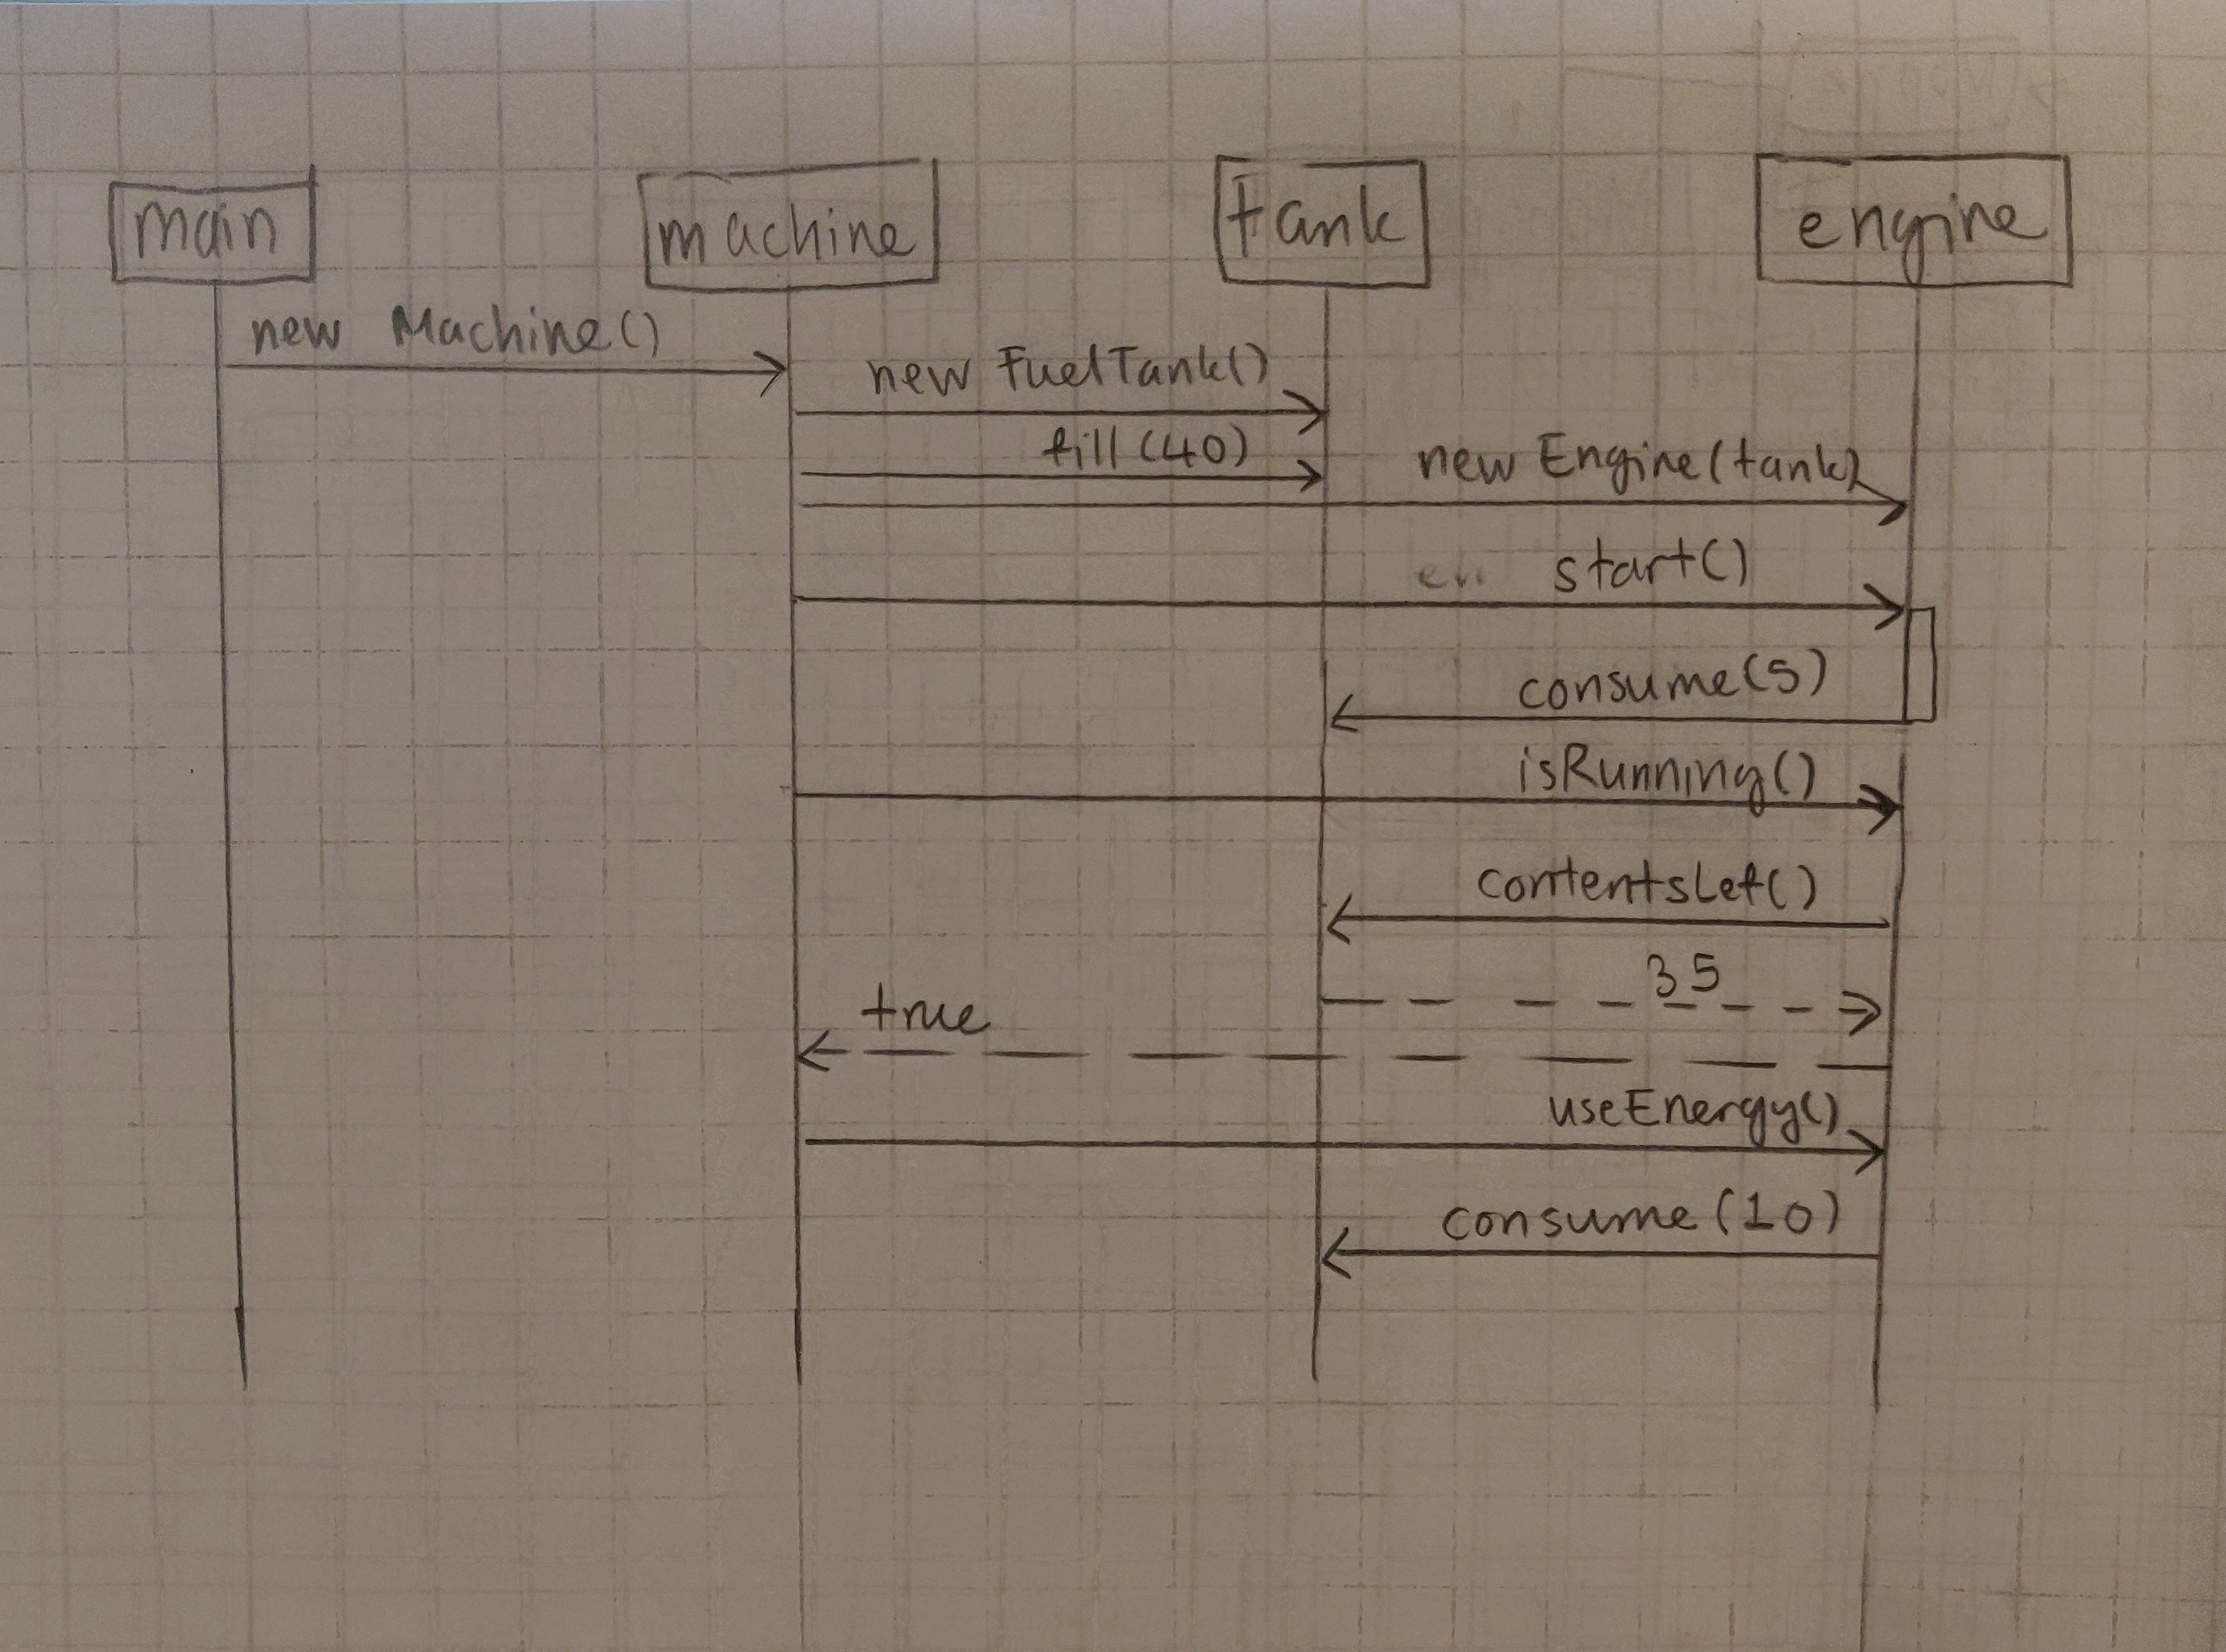 main machine tank engine
new Machine()
new FuelTank()
fill(40)
new Engine(tank)
start()
consume(5)
isRunning()
contentsLef()
35
true
useEnergy()
consume(10)